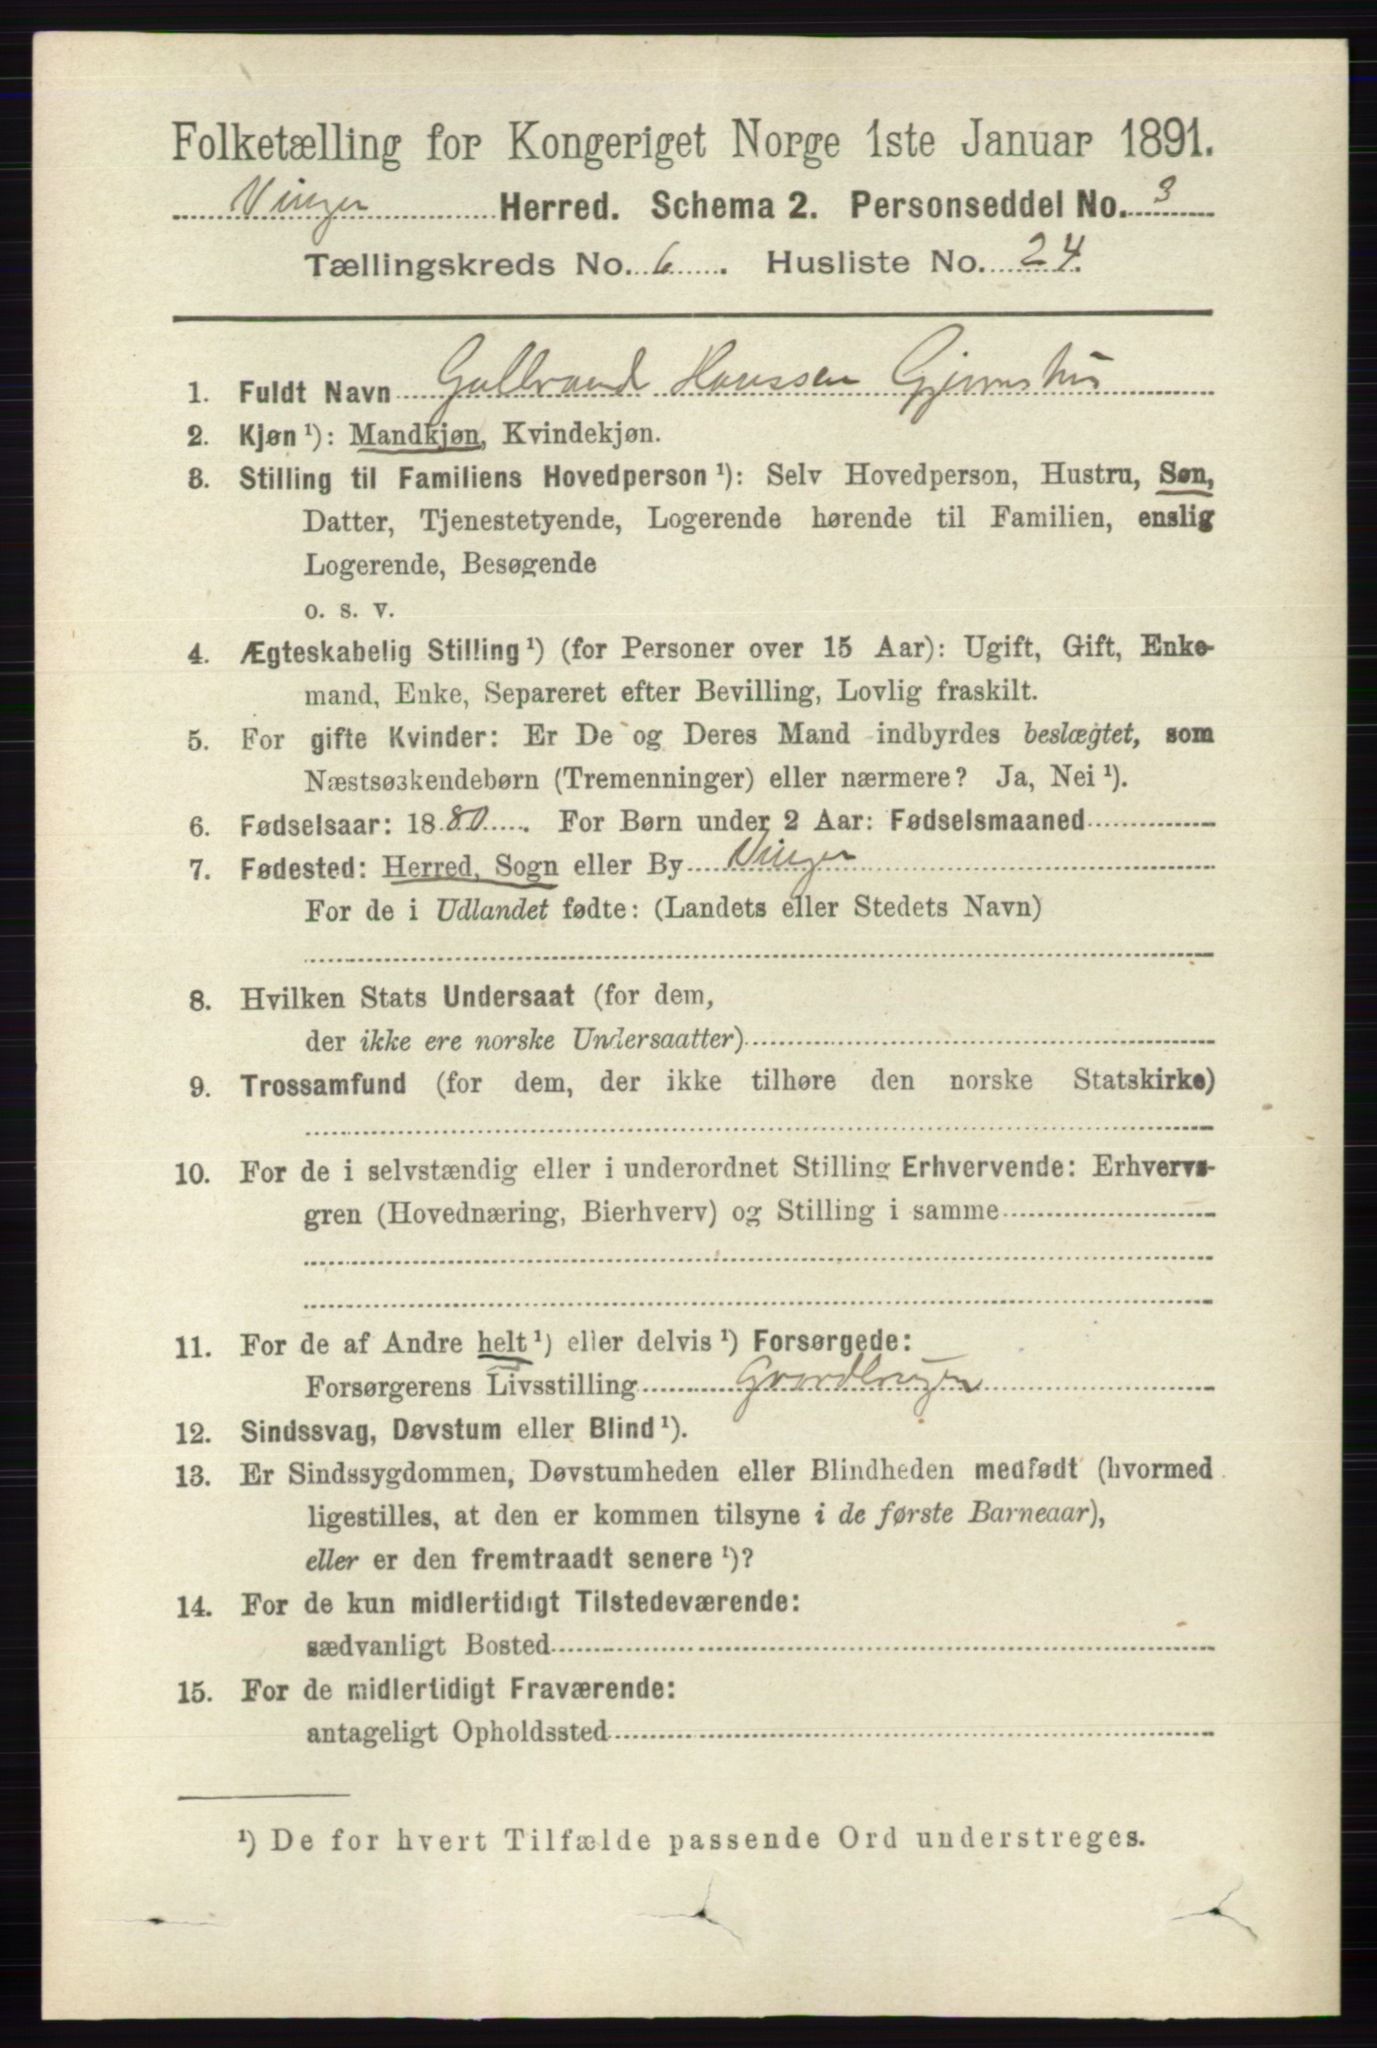 Folketælling for Kongeriget Norge 1ste Januar 1891.
Vinger Herred. Schema 2. Personseddel No. 3
Tællingskreds No. 6. Husliste No. 24.
1. Fuldt Navn Gulbrand Hanssen
2. Kjøn ¹): Mandkjøn, Kvindekjøn.
3. Stilling til Familiens Hovedperson ¹): Selv Hovedperson, Hustru, Søn,
Datter, Tjenestetyende, Logerende hørende til Familien, enslig
Logerende, Besøgende
o. s. v.
4. Ægteskabelig Stilling ¹) (for Personer over 15 Aar): Ugift, Gift, Enke-
mand, Enke, Separeret efter Bevilling, Lovlig fraskilt.
5. For gifte Kvinder: Er De og Deres Mand indbyrdes beslægtet, som
Næstsøskendebørn (Tremenninger) eller nærmere? Ja, Nei ¹).
6. Fødselsaar: 1880. For Børn under 2 Aar: Fødselsmaaned
7. Fødested: Herred, Sogn eller By Vinger
For de i Udlandet fødte: (Landets eller Stedets Navn)
8. Hvilken Stats Undersaat (for dem,
der ikke ere norske Undersaatter)
9. Trossamfund (for dem, der ikke tilhøre den norske Statskirke)
10. For de i selvstændig eller i underordnet Stilling Erhvervende: Erhvervs-
gren (Hovednæring, Bierhverv) og Stilling i samme
11. For de af Andre helt ¹) eller delvis ¹) Forsørgede:
Forsørgerens Livsstilling Gaardbruger
12. Sindssvag, Døvstum eller Blind ¹).
13. Er Sindssygdommen, Døvstumheden eller Blindheden medfødt (hvormed
ligestilles, at den er kommen tilsyne i de første Barneaar),
eller er den fremtraadt senere ¹)?
14. For de kun midlertidigt Tilstedeværende:
sædvanligt Bosted
15. For de midlertidigt Fraværende:
antageligt Opholdssted
¹) De for hvert Tilfælde passende Ord understreges.